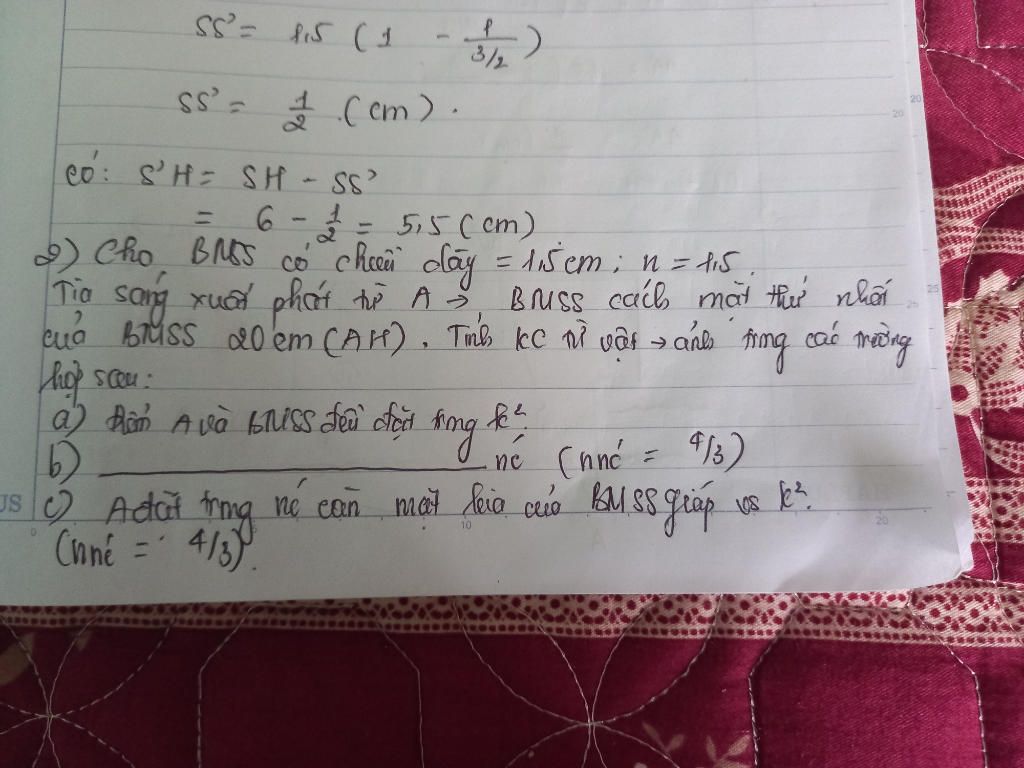 SS' = 1,5 ( 1 - 1/(3/2) )
SS' = 1/2 (cm).
có: S'H = SH - SS'
= 6 - 1/2 = 5,5 (cm)
2) Cho BMSS có chiều dày = 1,5 cm; n = 1,5.
Tia sáng xuất phát từ A → BMSS cách mặt thứ nhất
của BMSS 20 cm (AH). Tính KC từ vật → ảnh trng các trường
hợp sau:
a) A và BMSS đều đặt trng k².
b) ___ nc (nnc = 4/3)
c) A đặt trng nc còn mặt kia của BMSS giáp vs k².
(nnc = 4/3).
20
25
25
US
0
10
20